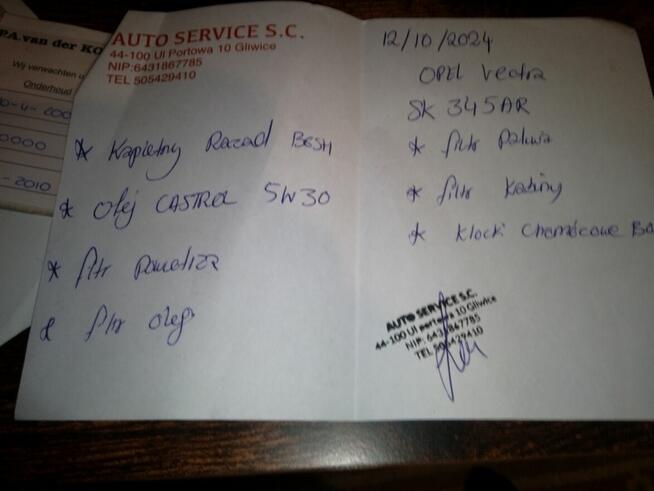 P.A. van der KO
Wij verwachten u
Onderhoud
0000
-2010
AUTO SERVICE S.C.
44-100 Ul Portowa 10 Gliwice
NIP:6431867785
TEL 505429410
* Kapletny Rozad BOSH
* Olej CASTROL 5W30
* filtr Powietrza
* filtr oleju
12/10/2024
OPEL Vectra
SK 345AR
* filtr Paliwa
* filtr Kabiny
* Klocki Chamócowe BO
AUTO SERVICE S.C.
44-100 Ul portowa 10 Gliwice
NIP: 6431867785
TEL 505429410